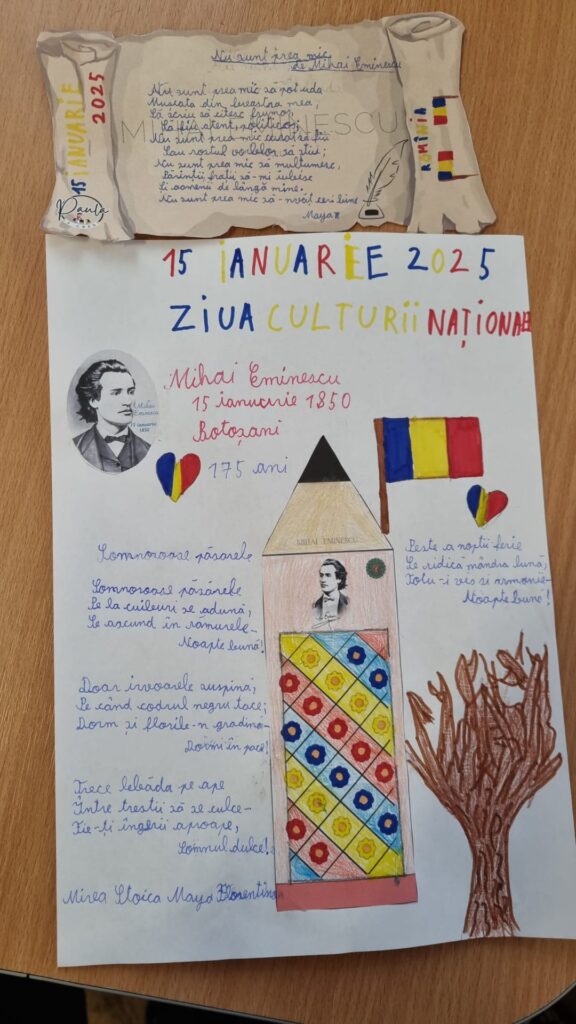 Nu sunt prea mic
de Mihai Eminescu
Nu sunt prea mic să pot uda
Muscata din fereastra mea,
Să scriu să citesc frumos,
Să fiu atent, politicos;
Nu sunt prea mic curat să fiu
Sau rostul vorbelor să știu;
Nu sunt prea mic să mulțumesc,
Părinții, frații să-mi iubesc
Și oamenii de lângă mine.
Nu sunt prea mic să-nvăț ce-i bine
Maya
15 IANUARIE
2025
Paula
MIHAI EMINESCU
ROMÂNIA
15 IANUARIE 2025
ZIUA CULTURII NAȚIONALE
Mihai Eminescu
15 ianuarie 1850
Botoșani
175 ani
Mihai
Eminescu
15 ianuarie
1850
MIHAI EMINESCU
Somnoroase păsărele
Somnoroase păsărele
Pe la cuiburi se adună,
Se ascund în rămurele-
Noapte bună!
Doar izvoarele suspină,
Pe când codrul negru tace;
Dorm și florile-n grădină-
Dormi în pace!
Trece lebăda pe ape
Între trestii să se culce-
Fie-ți îngerii aproape,
Somnul dulce!
Peste a nopții ferie
Se ridică mândra lună,
Totu-i vis si armonie-
Noapte bună!
Mirea Stoica Maya Florentina